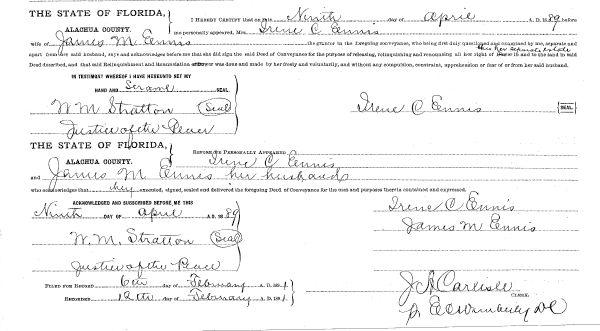 THE STATE OF FLORIDA,
ALACHUA COUNTY.
I HEREBY CERTIFY that on this Ninth day of April A. D. 1889 before
me personally appeared, Mrs. Irene C Ennis
wife of James M. Ennis the grantor in the foregoing conveyance, who being first duly questioned and examined by me, separate and
apart from her said husband, says and acknowledges before me that she did sign the said Deed of Conveyance for the purpose of releasing, relinquishing and renouncing all her right of in and to the land in said
Deed described, and that said Relinquishment and Renunciation was done and made by her freely and voluntarily, and without any compulsion, constraint, apprehension or fear of or from her said husband.
IN TESTIMONY WHEREOF I HAVE HEREUNTO SET MY
HAND AND SEAL
W. M. Stratton (Seal)
Justice of the Peace
Irene C Ennis SEAL
THE STATE OF FLORIDA,
ALACHUA COUNTY.
BEFORE ME PERSONALLY APPEARED Irene C Ennis
and James M Ennis her husband
who acknowledges that they executed, signed, sealed and delivered the foregoing Deed of Conveyance for the uses and purposes therein contained and expressed.
ACKNOWLEDGED AND SUBSCRIBED BEFORE ME THIS
Ninth DAY OF April A. D. 1889
W. M. Stratton (Seal)
Justice of the Peace
Irene C Ennis
James M Ennis
FILED FOR RECORD 6th day of February A. D. 1891
RECORDED 12th day of February A. D. 1891
J A Carlisle
CLERK.
E C Wimberly DC